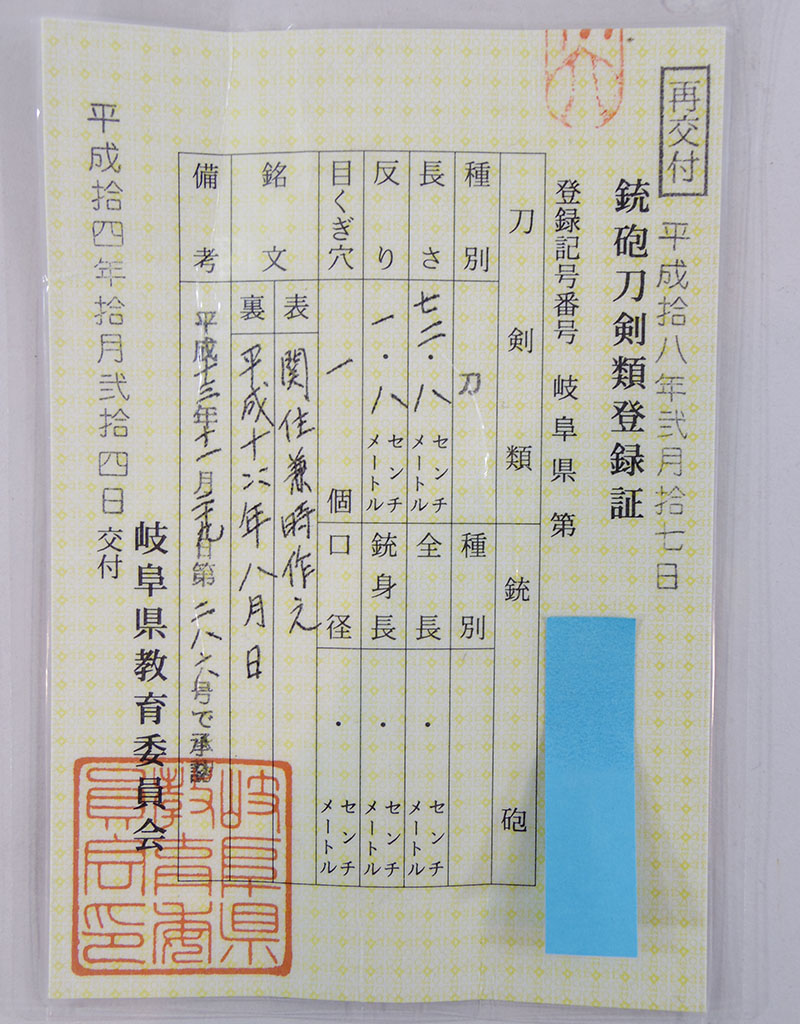 再交付
平成拾八年弐月拾七日
銃砲刀剣類登録証
登録記号番号 岐阜県 第
刀剣類
銃砲
種別 刀
長さ 七二・八 センチメートル
反り 一・八 センチメートル
目くぎ穴 一 個
種別
全長 ・ センチメートル
銃身長 ・ センチメートル
口径 ・ センチメートル
銘文
表 関住兼時作之
裏 平成十六年八月日
備考 平成十三年十一月二十九日第二八六号で承認
平成拾四年拾月弐拾四日 交付
岐阜県教育委員会
岐阜県教育委員会印